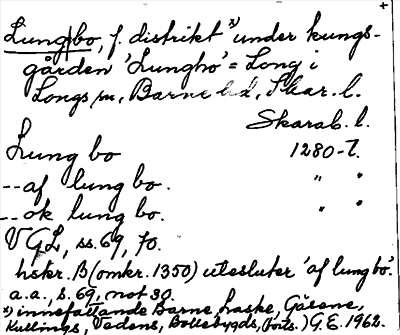 Lung|bo, f. distrikt x) under kungs-
gården 'Lungho' = Long i
Longs sn, Barne hd, Skar. l.
Skarab. l.
Lung bo 1280-t.
-- af lung bo. " "
-- ok lung bo. " "
VGL, ss. 69, 70.
hskr. B (omkr. 1350) utesluter 'af lung bo'.
a.a., s. 69, not 30.
x) innefattande Barne, Laske, Gäsene,
Kullings, Vedens, Bollebygds, (forts.) G E. 1962.